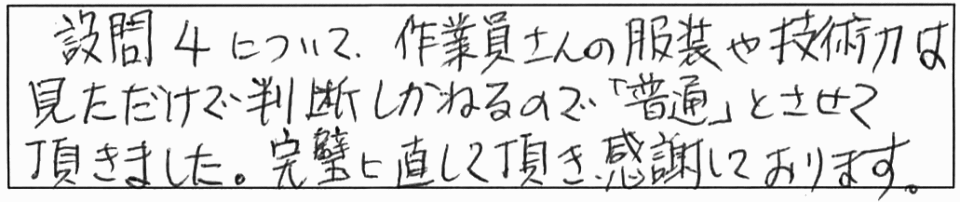 設問4について、作業員さんの服装や技術力は
見ただけで判断しかねるので「普通」とさせて
頂きました。完璧に直して頂き、感謝しております。